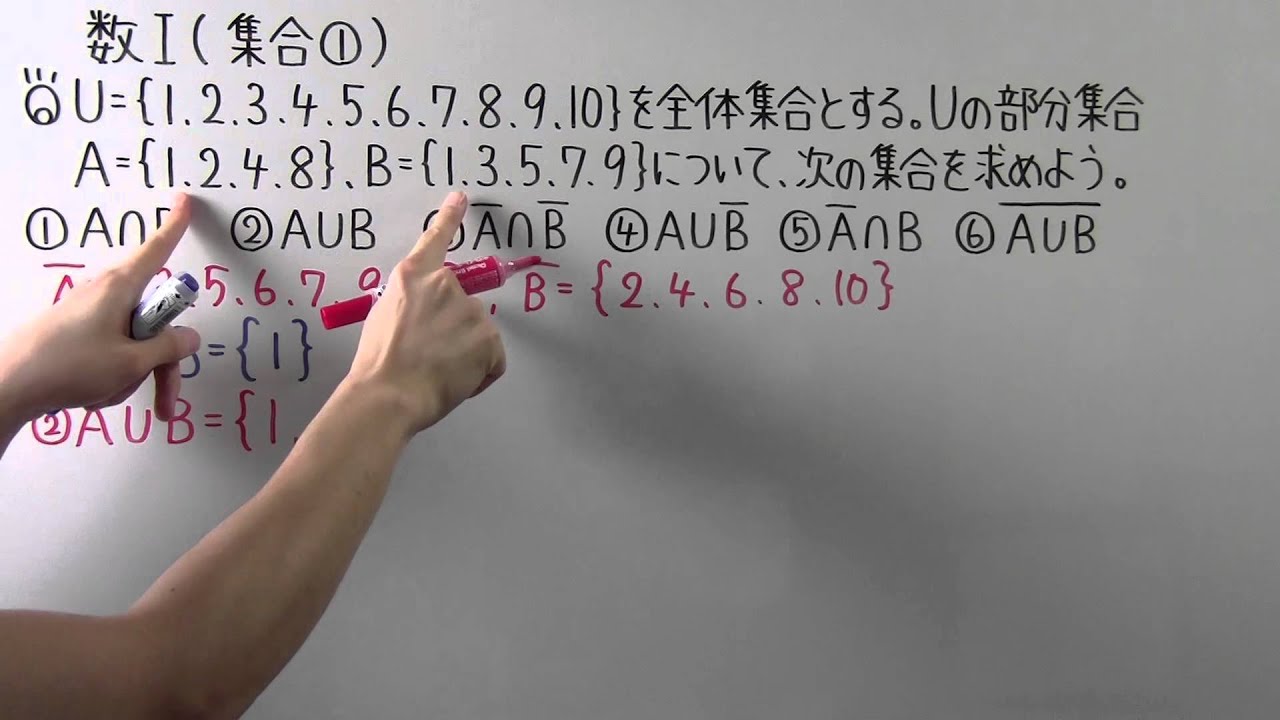 数Ⅰ(集合①)
U={1.2.3.4.5.6.7.8.9.10}を全体集合とする。Uの部分集合
A={1.2.4.8}、B={1.3.5.7.9}について、次の集合を求めよう。
①A∩B ②A∪B A̅∩B̅ ④A∪B̅ ⑤A̅∩B ⑥ A̅∪̅B̅
A̅ 5.6.7.9 , B̅={2.4.6.8.10}
B={1}
②A∪B={1.